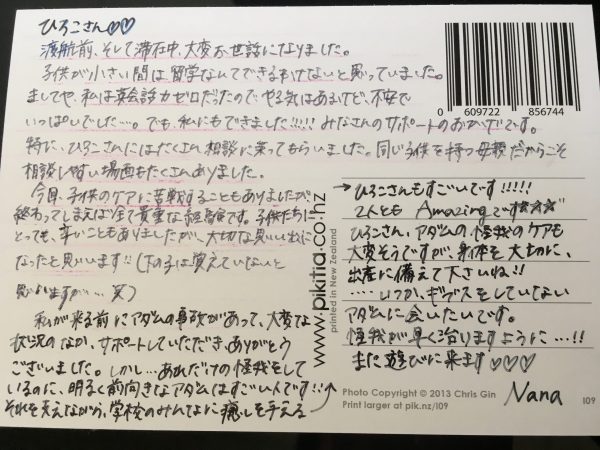 ひろこさん♡♡
渡航前、そして滞在中、大変お世話になりました。
子供が小さい間は留学なんてできるわけないと思っていました。
ましてや、私は英会話力ゼロだったのでやる気はあるけど、不安で
いっぱいでした…。でも、私にもできました!!!!! みなさんのサポートのおかげです。
特に、ひろこさんにはたくさん相談に乗ってもらいました。同じ子供を持つ母親だからこそ
相談しやすい場面もたくさんありました。
今回、子供のケアに苦戦することもありましたが、
終わってしまえば全て貴重な経験です。子供たちに
とっても、辛いこともありましたが、大切な思い出に
なったと思います!! (下の子は覚えていないと
思いますが…笑)
私が来る前にアダムの事故があって、大変な
状況のなか、サポートしていただき、ありがとう
ございました。しかし…あれだけの怪我をして
いるのに、明るく前向きなアダムはすごい人です!!
それを支えながら、学校のみんなに癒しを与える
→ひろこさんもすごいです!!!!!
2人とも Amazingです☆☆☆
ひろこさん、アダムの怪我のケアも
大変そうですが、身体を大切に、
出産に備えて下さいね!!
……いつか、ギプスをしていない
アダムに会いたいです。
怪我が早く治りますように…!!
また遊びに来ます♡♡♡
Nana
0 609722 856744
www.pikitia.co.nz
printed in New Zealand
Photo Copyright © 2013 Chris Gin
Print larger at pik.nz/I09
I09